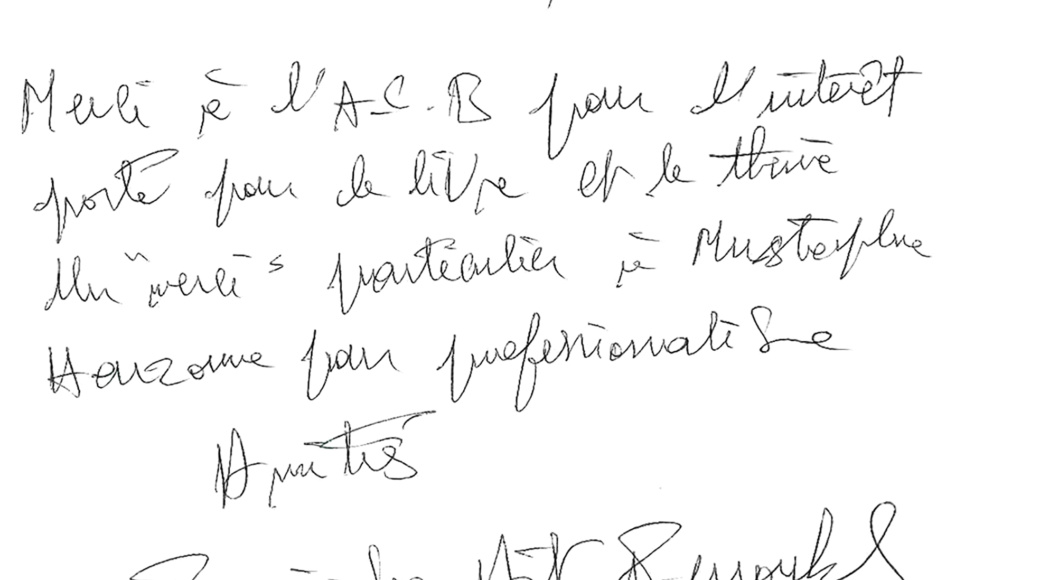 Merci à l'A.C.B pour l'intérêt
porté pour le livre et le thème
Un "merci" particulier à Mustapha
pour professionnalisme
Amitiés